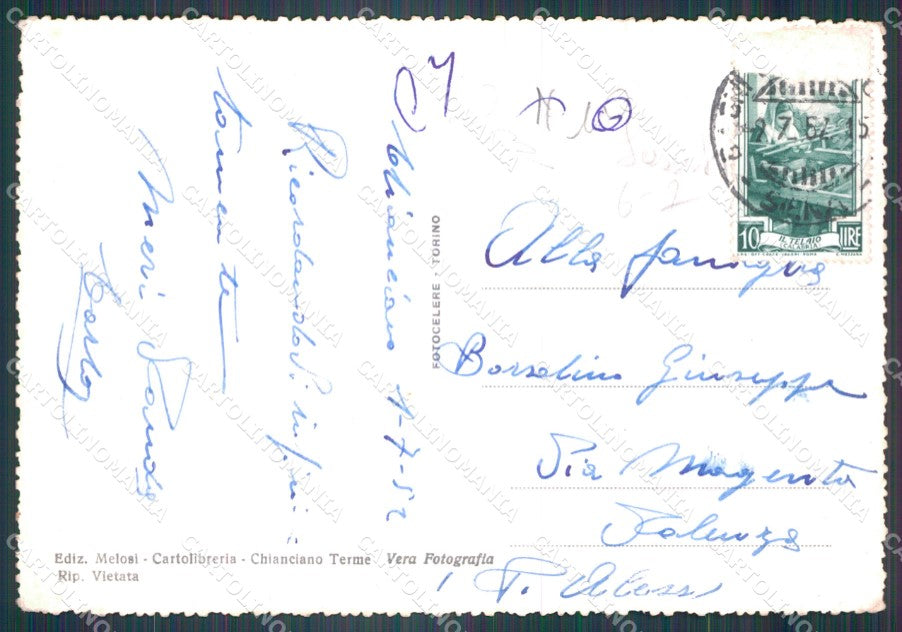 Chianciano 1-7-52
Ricordandovi infini=
tamente
Carlo
FOTOCELERE - TORINO
Alla famiglia
Borsalino Giuseppe
Via Magenta
Valenza
P. Aless
10 LIRE
IL TELAIO
CALABRIA
SIENA
Ediz. Melosi - Cartolibreria - Chianciano Terme Vera Fotografia
Rip. Vietata
CARTOLINOMANIA